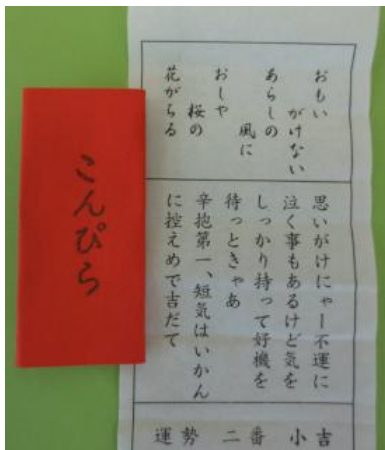 こんぴら
おもい
がけない
あらしの
風に
おしや
桜の
花がちる
思いがけにゃー不運に
泣く事もあるけど気を
しっかり持って好機を
待っときゃあ
辛抱第一、短気はいかん
に控えめで吉だて
運勢 二番 小吉